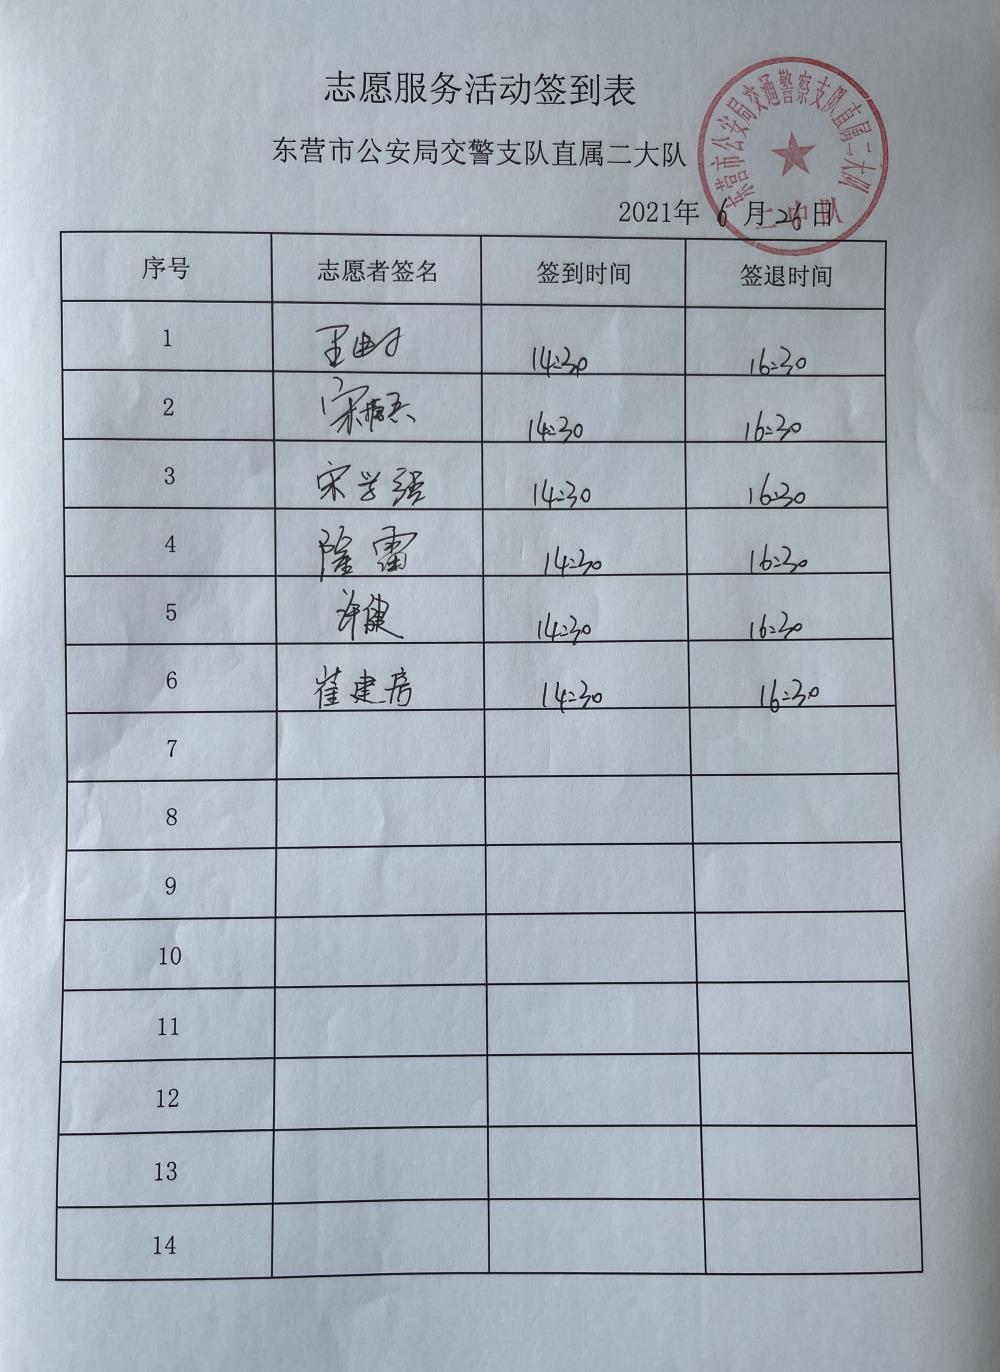 志愿服务活动签到表
东营市公安局交警支队直属二大队
东营市公安局交通警察支队直属二大队
二中队
2021年 6 月 26 日
序号 志愿者签名 签到时间 签退时间
1 王 14:30 16:30
2 宋 14:30 16:30
3 宋学强 14:30 16:30
4 隆雷 14:30 16:30
5 许健 14:30 16:30
6 崔建房 14:30 16:30
7
8
9
10
11
12
13
14